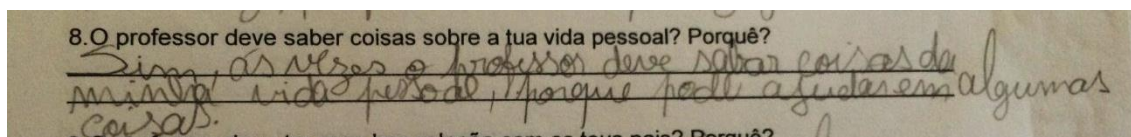 8.O professor deve saber coisas sobre a tua vida pessoal? Porquê?
Sim, ás vezes o professor deve saber coisas da
minha vida pessoal, porque pode ajudar em algumas
coisas.
com os teus pais? Porquê?